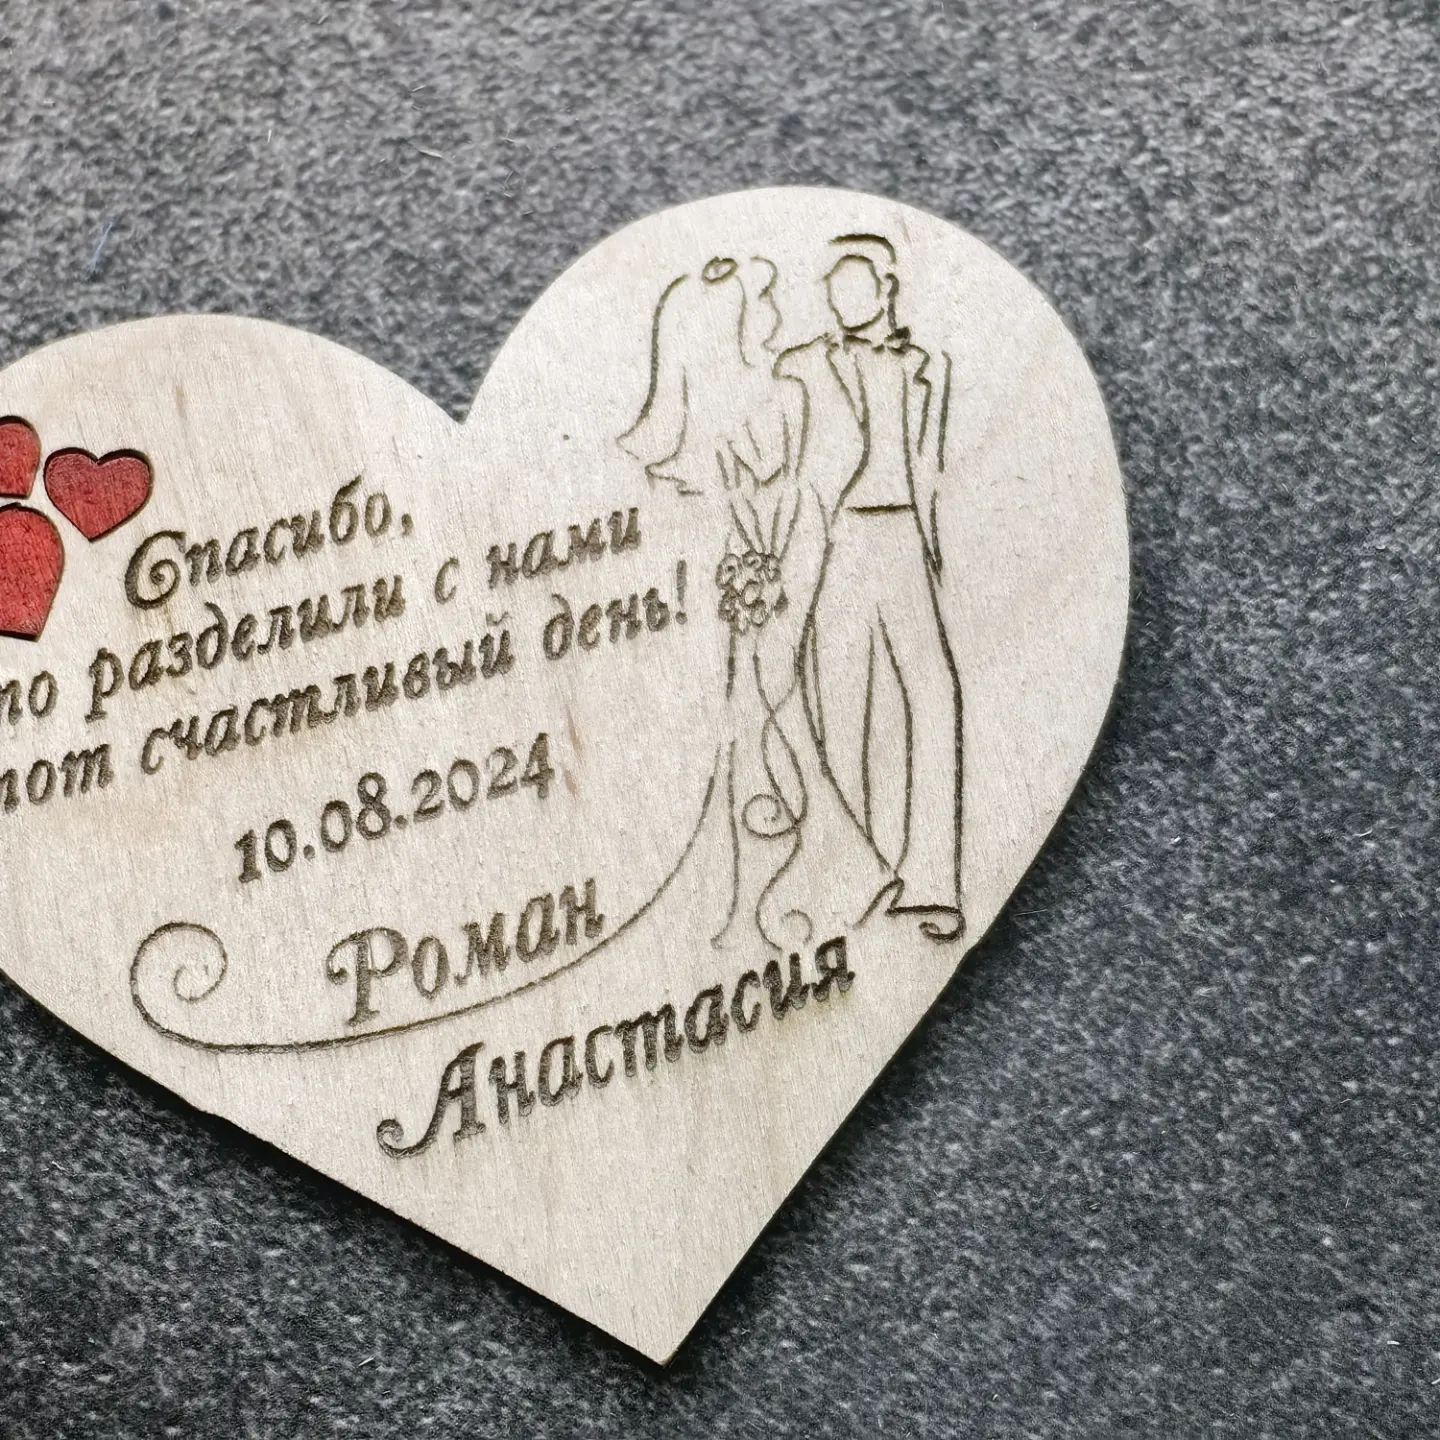 Спасибо,
то разделили с нами
тот счастливый день!
10.08.2024
Роман
Анастасия